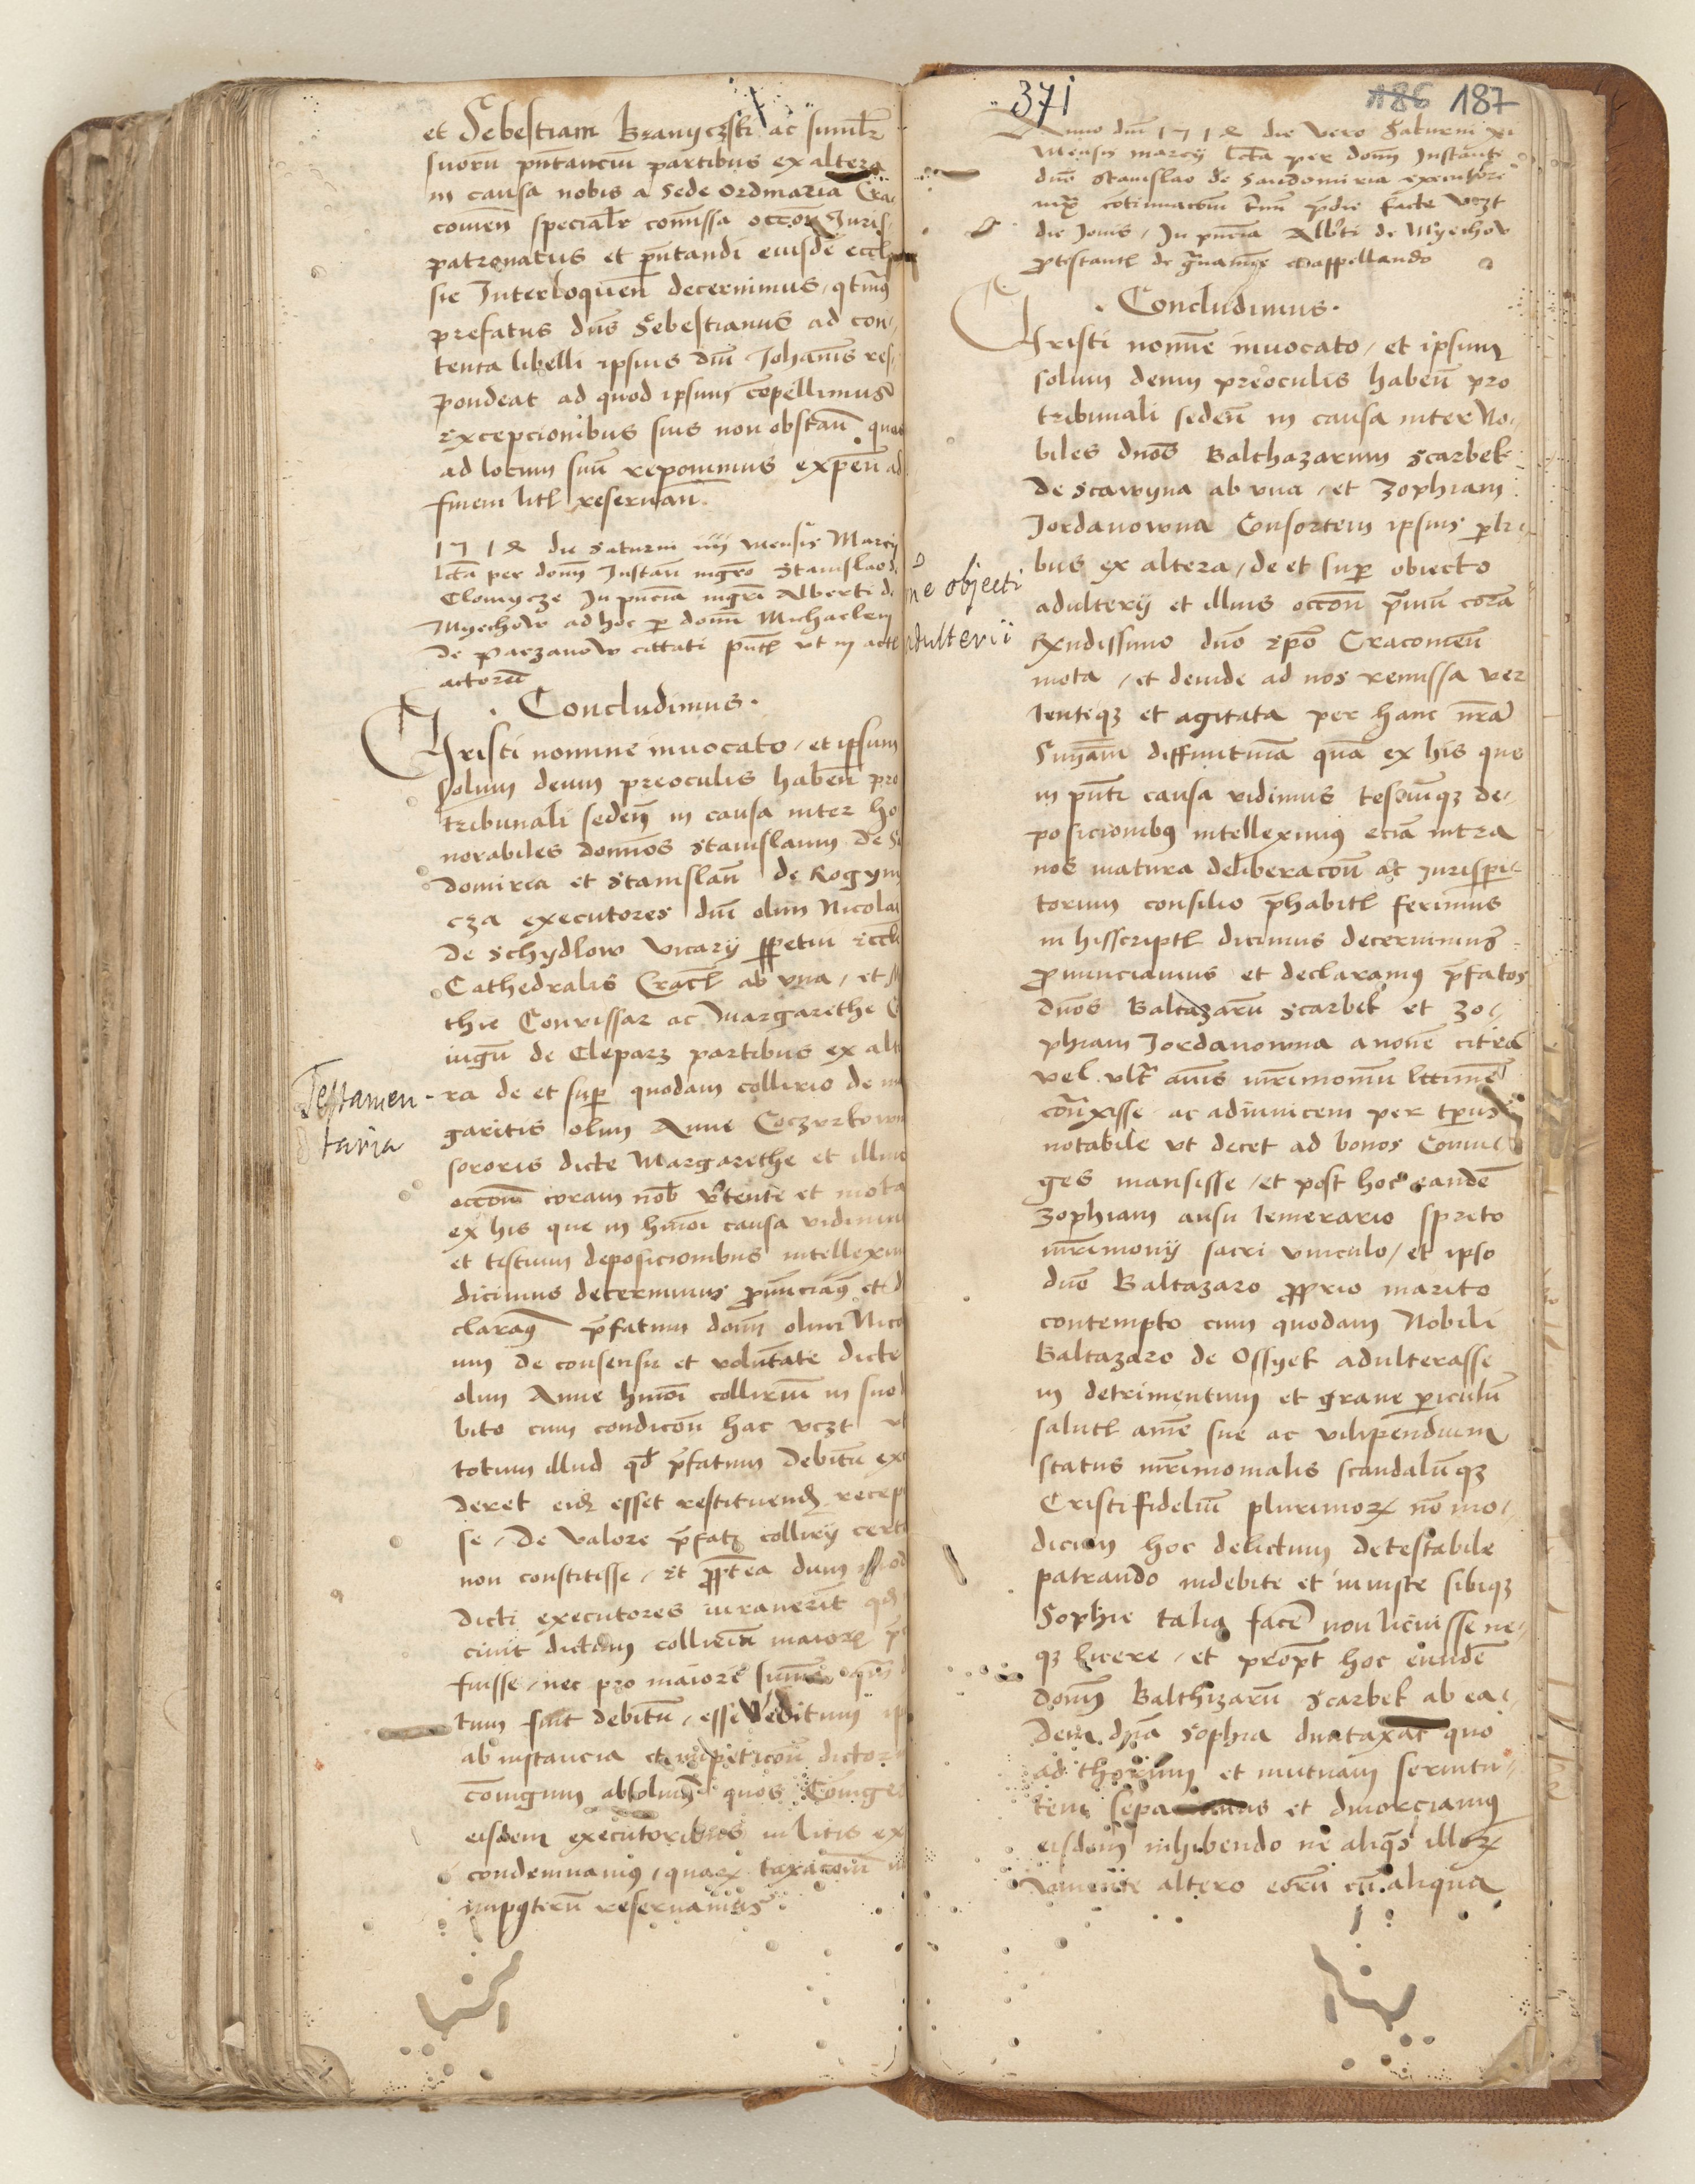 et Sebestiam Branyczski ac simlr
suoru pntanciu partibus ex altera
in causa nobis a Sede Ordinaria Cra
couien specialr comissa occon Juris
patronatus et pntandi eiusde eccle
sie Interloquen decernimus qtnus
prefatus dns Sebestianus ad con
tenta libelli ipsius dni Johanis res
pondeat ad quod ipsum copellimus
Excepcionibus suis non obstan quas
ad locum suu reponimus expen ad
finem litl reseruan
1518 die Saturni iiii mensis Marcy
lcta per donu Instan mgro Stanislao de
Clomycze In pncia mgri Alberti de
Myechow ad hoc p donu Michaelem
de parzanow cittati pntl vt in actl
actoru
· Concludimus ·
Christi nomine inuocato / et ipsum
solum deum preoculis haben pro
tribunali seden in causa inter ho
norabiles domnos Stanislaum de Sa
domiria et Stanislau de Rogyni
cza executores dni olim Nicolai
de Schydlow vicarij ppetui Eccle
Cathedralis Cracl ab vna / et
thie Conuissar ac Margarethe Co
iugu de Cleparz partibus ex alte
ra de et sup quodam collirio de m
garitis olim Anne Coczurkown
sororis dicte Margarethe et illius
occon coram nob vtente et mota
ex his que in hmoi causa vidimus
et testium deposicionibus intellexim
dicimus decernimus pnunciam9 et d
claram9 pfatum donu olim Nico
um de consensu et voluntate dicte
olim Anne hmoi colliriu in suo
bito cum condicon hac vczt
totum illud qd pfatum debitu ex
deret eidz esset restituend recep
se / de valore pfati collirij
non constitisse / Et ppterea dum
dicti executores iurauerit qd
ciuit dictum colliriu maioris
fuisse / nec pro maiore suma
tum suit debitu / esse veditum
ab instancia et impeticon dictor
coniugum absoluim quos Coniuges
eisdem executoribus in litis ex
condemnamus / quarz taxacom
imposteru reseruamus
Testamen-
taria
371
186 187
Anno dni 1518 die vero Saturni xi
Mensis marcij lcta per donu Instante
dno Stanislao de Sandomiria executore
die Jouis / In pncia Alberti de Myechow
ptestantl de gnamie et appellando
· Concludimus ·
Christi nomine inuocato / et ipsum
solum deum preoculis haben pro
tribunali seden in causa inter No
biles dnos Balthazarum Scarbek
de Scawyna ab vna / et Zophiam
Jordanowna Consortem ipsius parti
bus ex altera / de et sup obiecto
adulterij et illius occon pmu cora
Rxndissimo dno Epo Cracouien
mota / et deinde ad nos remissa ver
tenteqz et agitata per hanc nra
Sniam diffinitiua qua ex his que
in pnti causa vidimus testiuqz de
posicionibus intelleximus ecia intra
nos matura deliberacon ac Jurisperi
torum consilio phabitl ferimus
in hisscriptl dicimus decernimus
pnunciamus et declaramus pfatos
dnos Baltazaru Scarbek et Zo
phiam Jordanowna a none citra
vel vltr anis mrimoniu lttime
contraxisse ac adinuicem per tpus
notabile vt decet ad bonos Coniu
ges mansisse / et post hoc eande
Zophiam ausu temerario spreto
mrimonij sacri vinculo / et ipso
dno Baltazaro pprio marito
contempto cum quodam Nobili
Baltazaro de Ossyek adulterasse
in detrimentum et graue periculu
salutl anie sue ac vilipendium
status mrimonialis scandaluqz
Cristifideliu plurimorz no mo
dicum hoc delictum detestabile
patrando indebite et iniuste sibiqz
Sophie talia face non licuisse ne
qz licere / et propt hoc eunde
donu Balthizaru Scarbek ab ea
dem dna Sophia duntaxat quo
ad thorum et mutuam seruitu
tem separamus et diuorciamus
eisdem inhibendo ne aliqs illorz
viuente altero eoru cu aliqua
ne objecti
adulterii